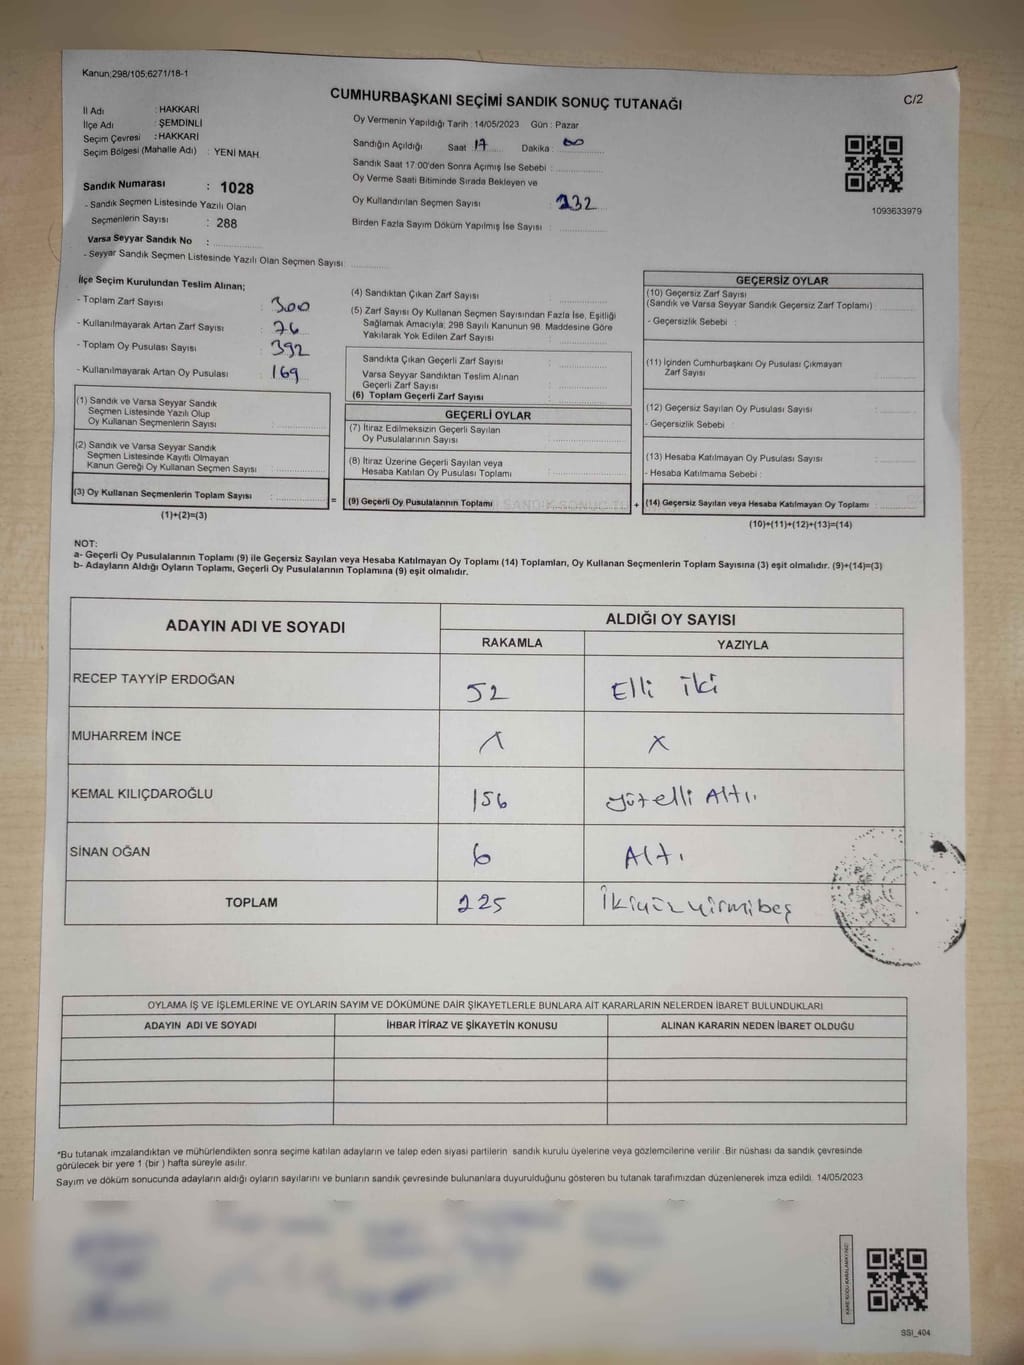 Kanun;298/105;6271/18-1
CUMHURBAŞKANI SEÇİMİ SANDIK SONUÇ TUTANAĞI
C/2
İl Adı : HAKKARİ
İlçe Adı : ŞEMDİNLİ
Seçim Çevresi : HAKKARİ
Seçim Bölgesi (Mahalle Adı) : YENİ MAH.
Sandık Numarası : 1028
- Sandık Seçmen Listesinde Yazılı Olan
Seçmenlerin Sayısı : 288
Varsa Seyyar Sandık No :
- Seyyar Sandık Seçmen Listesinde Yazılı Olan Seçmen Sayısı:
Oy Vermenin Yapıldığı Tarih : 14/05/2023 Gün : Pazar
Sandığın Açıldığı Saat 17 Dakika : 00
Sandık Saat 17:00'den Sonra Açımış İse Sebebi :
Oy Verme Saati Bitiminde Sırada Bekleyen ve
Oy Kullandırılan Seçmen Sayısı : 232
Birden Fazla Sayım Döküm Yapılmış İse Sayısı :
1093633979
İlçe Seçim Kurulundan Teslim Alınan;
- Toplam Zarf Sayısı : 300
- Kullanılmayarak Artan Zarf Sayısı : 76
- Toplam Oy Pusulası Sayısı : 392
- Kullanılmayarak Artan Oy Pusulası : 169
(1) Sandık ve Varsa Seyyar Sandık
Seçmen Listesinde Yazılı Olup
Oy Kullanan Seçmenlerin Sayısı :
(2) Sandık ve Varsa Seyyar Sandık
Seçmen Listesinde Kayıtlı Olmayan
Kanun Gereği Oy Kullanan Seçmen Sayısı :
(3) Oy Kullanan Seçmenlerin Toplam Sayısı :
(1)+(2)=(3)
=
(4) Sandıktan Çıkan Zarf Sayısı :
(5) Zarf Sayısı Oy Kullanan Seçmen Sayısından Fazla İse, Eşitliği
Sağlamak Amacıyla; 298 Sayılı Kanunun 98. Maddesine Göre
Yakılarak Yok Edilen Zarf Sayısı :
Sandıkta Çıkan Geçerli Zarf Sayısı :
Varsa Seyyar Sandıktan Teslim Alınan
Geçerli Zarf Sayısı :
(6) Toplam Geçerli Zarf Sayısı :
GEÇERLİ OYLAR
(7) İtiraz Edilmeksizin Geçerli Sayılan
Oy Pusulalarının Sayısı :
(8) İtiraz Üzerine Geçerli Sayılan veya
Hesaba Katılan Oy Pusulası Toplamı :
(9) Geçerli Oy Pusulalarının Toplamı
+
GEÇERSİZ OYLAR
(10) Geçersiz Zarf Sayısı
(Sandık ve Varsa Seyyar Sandık Geçersiz Zarf Toplamı) :
- Geçersizlik Sebebi :
(11) İçinden Cumhurbaşkanı Oy Pusulası Çıkmayan
Zarf Sayısı :
(12) Geçersiz Sayılan Oy Pusulası Sayısı :
- Geçersizlik Sebebi :
(13) Hesaba Katılmayan Oy Pusulası Sayısı :
- Hesaba Katılmama Sebebi :
(14) Geçersiz Sayılan veya Hesaba Katılmayan Oy Toplamı :
(10)+(11)+(12)+(13)=(14)
NOT:
a- Geçerli Oy Pusulalarının Toplamı (9) ile Geçersiz Sayılan veya Hesaba Katılmayan Oy Toplamı (14) Toplamları, Oy Kullanan Seçmenlerin Toplam Sayısına (3) eşit olmalıdır. (9)+(14)=(3)
b- Adayların Aldığı Oyların Toplamı, Geçerli Oy Pusulalarının Toplamına (9) eşit olmalıdır.
ADAYIN ADI VE SOYADI
ALDIĞI OY SAYISI
RAKAMLA YAZIYLA
RECEP TAYYİP ERDOĞAN 52 Elli iki
MUHARREM İNCE X X
KEMAL KILIÇDAROĞLU 156 yüzelli Altı
SİNAN OĞAN 6 Altı
TOPLAM 225 İkiyüzyirmibeş
OYLAMA İŞ VE İŞLEMLERİNE VE OYLARIN SAYIM VE DÖKÜMÜNE DAİR ŞİKAYETLERLE BUNLARA AİT KARARLARIN NELERDEN İBARET BULUNDUKLARI
ADAYIN ADI VE SOYADI İHBAR İTİRAZ VE ŞİKAYETİN KONUSU ALINAN KARARIN NEDEN İBARET OLDUĞU
*Bu tutanak imzalandıktan ve mühürlendikten sonra seçime katılan adayların ve talep eden siyasi partilerin sandık kurulu üyelerine veya gözlemcilerine verilir. Bir nüshası da sandık çevresinde
görülecek bir yere 1 (bir) hafta süreyle asılır.
Sayım ve döküm sonucunda adayların aldığı oyların sayılarını ve bunların sandık çevresinde bulunanlara duyurulduğunu gösteren bu tutanak tarafımızdan düzenlenerek imza edildi. 14/05/2023
SSI_404